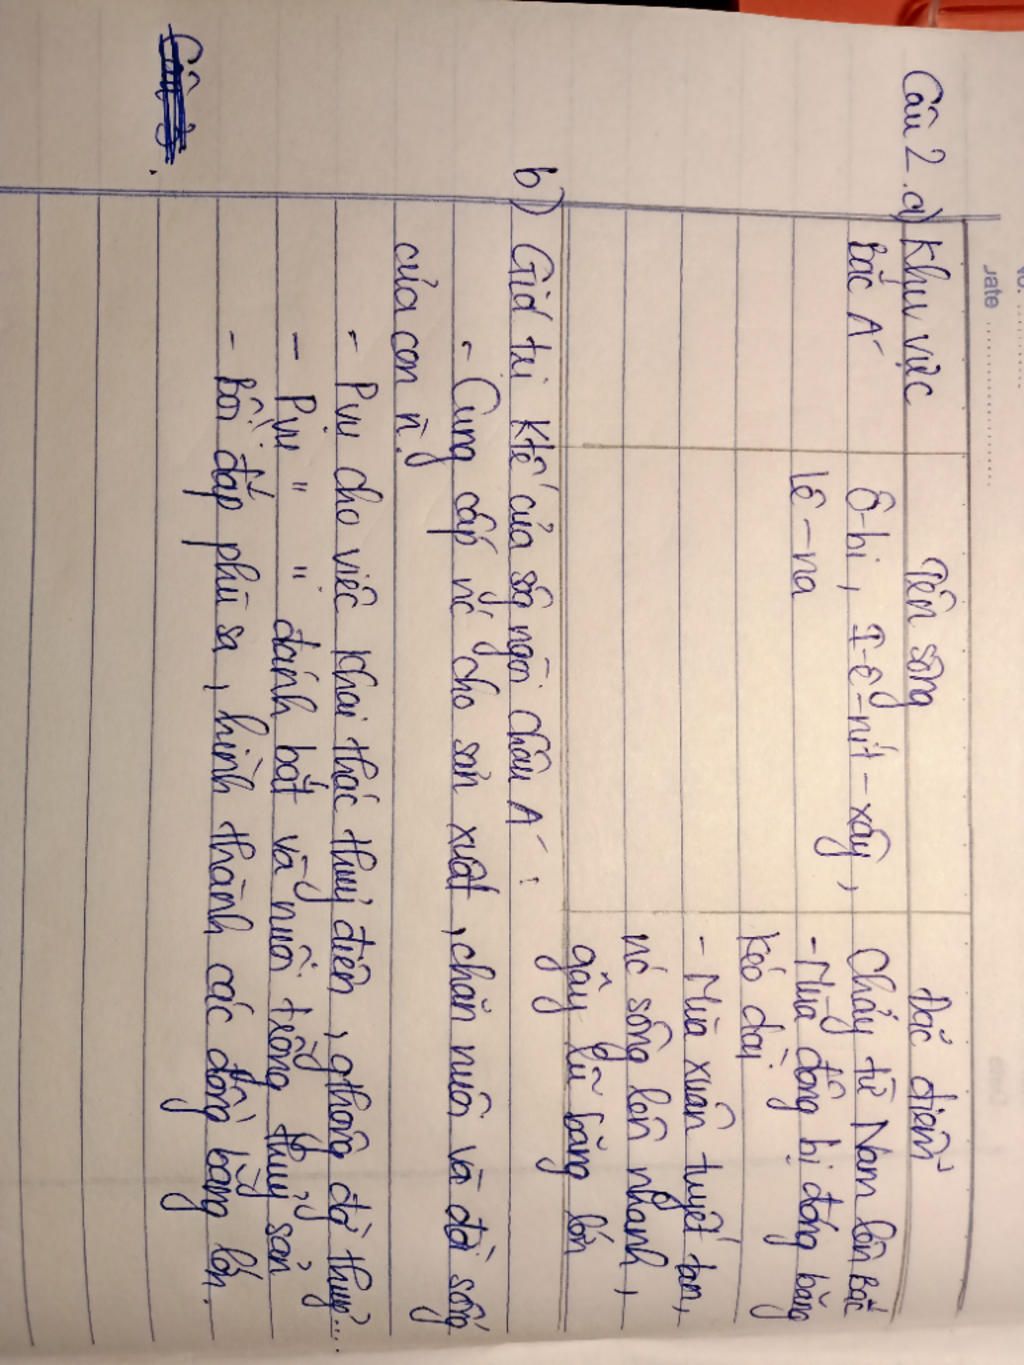 No. ..........
Date ..........
Câu 2.a) Khu vực Tên sông Đặc điểm
Bắc Á Ô-bi, I-ê-nit-xây, Chảy từ Nam lên Bắc
Lê-na -Mùa đông bị đóng băng
kéo dài
- Mùa xuân tuyết tan,
nc sông lên nhanh,
gây lũ băng lớn
b) Giá trị Ktế của sôg ngòi châu Á :
- Cung cấp nc cho sản xuất, chăn nuôi và đời sống
của con ng.
- Pvụ cho việc khai thác thuỷ điện, gthông đg thuỷ...
- Pvụ " " đánh bắt và nuôi trồng thuỷ sản
- Bồi đắp phù sa, hình thành các đồng bằng lớn.